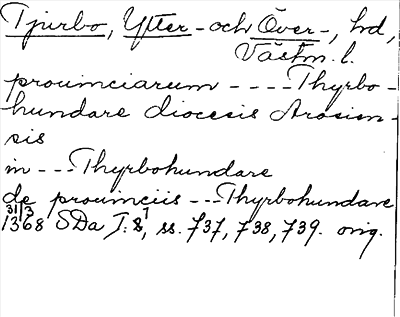 Tjurbo, Ytter- och Över-, hd,
Västm. l.
prouinciarum ---- Thyrbo-
hundare diocesis Arosien-
sis
in --- Thyrbohundare
de prouinciis --- Thyrbohundare
31/3 1368 SDa T. 8¹, ss. 737, 738, 739. orig.